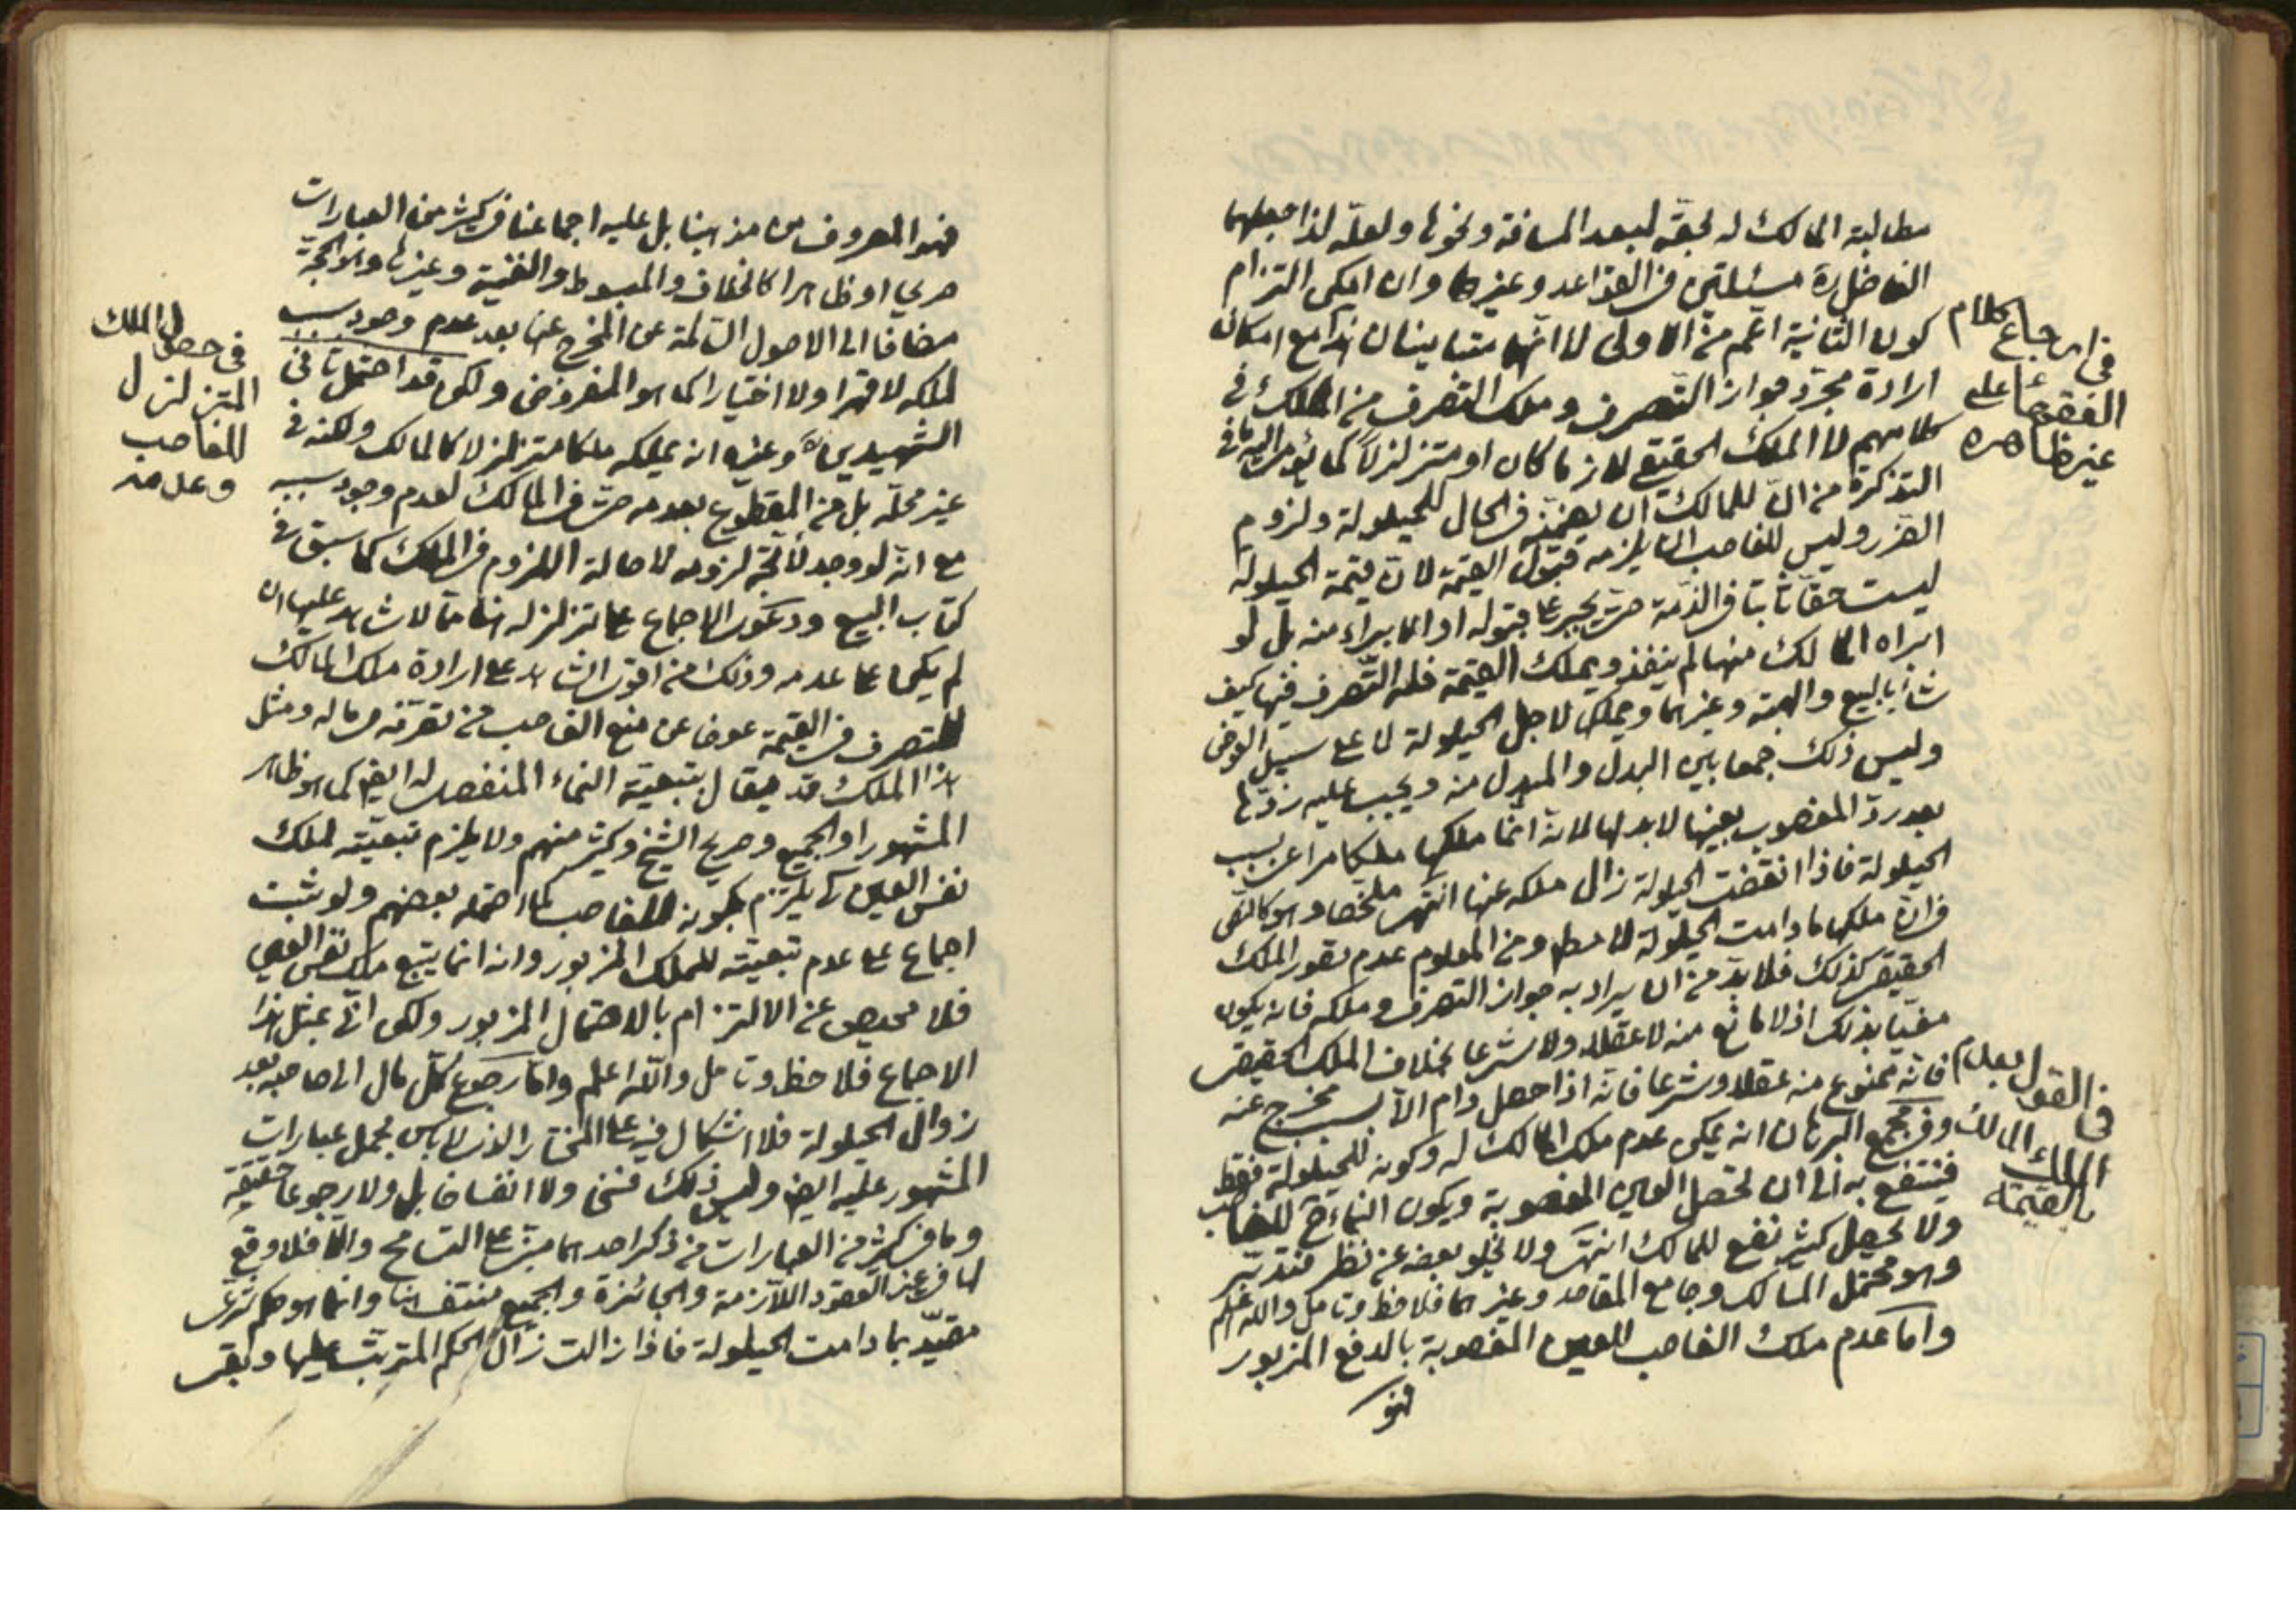 مطالبة المالك له بحقه لبعد المسافة ونحوها ولعله لذا جعلهما
الفاضل ره مسئلتين في القواعد وغيرها وان امكن التزام
كون الثانية اعم من الاولى لا انهما متباينان هذا مع امكان
ارادة مجرد جواز التصرف وملك التصرف من الملك في
كلامهم لا الملك الحقيقي لازما كان او متزلزلا كما يؤمى اليه ما في
التذكرة من ان للمالك ان في الحال للحيلولة ولزوم
الضرر وليس للغاصب ان يلزمه قبول القيمة لان قيمة الحيلولة
ليست حقا ثابتا في الذمة حتى يجبر على قبوله او الابراء منه بل لو
ابراه المالك منها لم ينفذ ويملك القيمة فله التصرف فيها كيف
شاء بالبيع والهبة وغيرهما ويملك لاجل الحيلولة لا على سبيل العوض
وليس ذلك جمعا بين البدل والمبدل منه ويجب عليه ردها
بعد رد المغصوب بعينها لا بدلها لانه انما ملكها ملكا مراعى بسبب
الحيلولة فاذا انقضت الحيلولة زال ملكه عنها انتهى ملخصا وهو كالنص
في ان ملكها ما دامت الحيلولة لا مطلقا ومن المعلوم عدم تصور الملك
الحقيقي كذلك فلا بد من ان يراد به جواز التصرف وملكه فانه يكون
مغيا بذلك اذ لا مانع منه لا عقلا ولا شرعا بخلاف الملك الحقيقي
فانه ممنوع منه عقلا وشرعا فانه اذا حصل دام الا بسبب مخرج عنه
وفي مجمع البرهان انه يمكن عدم ملك المالك له وكونه للحيلولة فقط
فينتفع به الى ان تحصل العين المغصوبة ويكون النماء ح للغاصب
ولا يحصل كثير نفع للمالك انتهى ولا يخلو بعضه عن نظر فتدبر
وهو محتمل المسالك وجامع المقاصد وغيرهما فلاحظ وتامل والله اعلم
واما عدم ملك الغاصب للعين المغصوبة بالدفع المزبور
فهو
في ارجاع كلام
الفقهاء على
غير ظاهره
في القول بعدم
الملك المالك
بالقيمة
فهو المعروف من مذهبنا بل عليه اجماعنا في كثير من العبارات
صريحا او ظاهرا كالخلاف والمبسوط والغنية وغيرها وهو الحجة
مضافا الى الاصول السالمة عن المخرج عنها بعد عدم وجود سبب
لملكه لا قهرا ولا اختيارا كما هو المفروض ولكن قد احتمل ثاني
الشهيدين ره وغيره انه يملكه ملكا متزلزلا كالمالك ولكنه في
غير محله بل من المقطوع بعدمه حتى في المالك لعدم وجود سببه
مع انه لو وجد لاتجه لزومه لاصالة اللزوم في الملك كما سبق في
كتاب البيع ودعوى الاجماع على تزلزله هنا مما لا شاهد عليها ان
لم يكن على عدمه وذلك من اقوى الشاهد على ارادة ملك المالك
للتصرف في القيمة عوضا عن منع الغاصب من تصرفه في ماله ومثل
هذا الملك قد يقال بتبعية النماء المنفصل له ايضا كما هو ظاهر
المشهور او الجميع وصريح الشيخ وكثير منهم ولا يلزم تبعيته لملك
نفس العين كي يلتزم بكونه للغاصب كما احتمله بعضهم ولو ثبت
اجماع على عدم تبعيته للملك المزبور وانه انما يتبع ملك نفس العين
فلا محيص عن الالتزام بالاحتمال المزبور ولكن انى بمثل هذا
الاجماع فلاحظ وتامل والله اعلم واما رجوع كل مال الى صاحبه بعد
زوال الحيلولة فلا اشكال فيه على المختار الذى لا باس بحمل عبارات
المشهور عليه ايضا وليس ذلك فسخا ولا انفساخا بل ولا رجوعا حقيقة
وما في كثير من العبارات من ذكر احدهما مبنى على التسامح والا فلا وقع
لها في غير العقود اللازمة والجائزة والجميع منتف هنا وانما هو حكم شرعى
مقيد بما دامت الحيلولة فاذا زالت زال الحكم المترتب عليها وبقى
في حصول الملك
المتزلزل
للغاصب
وعدمه